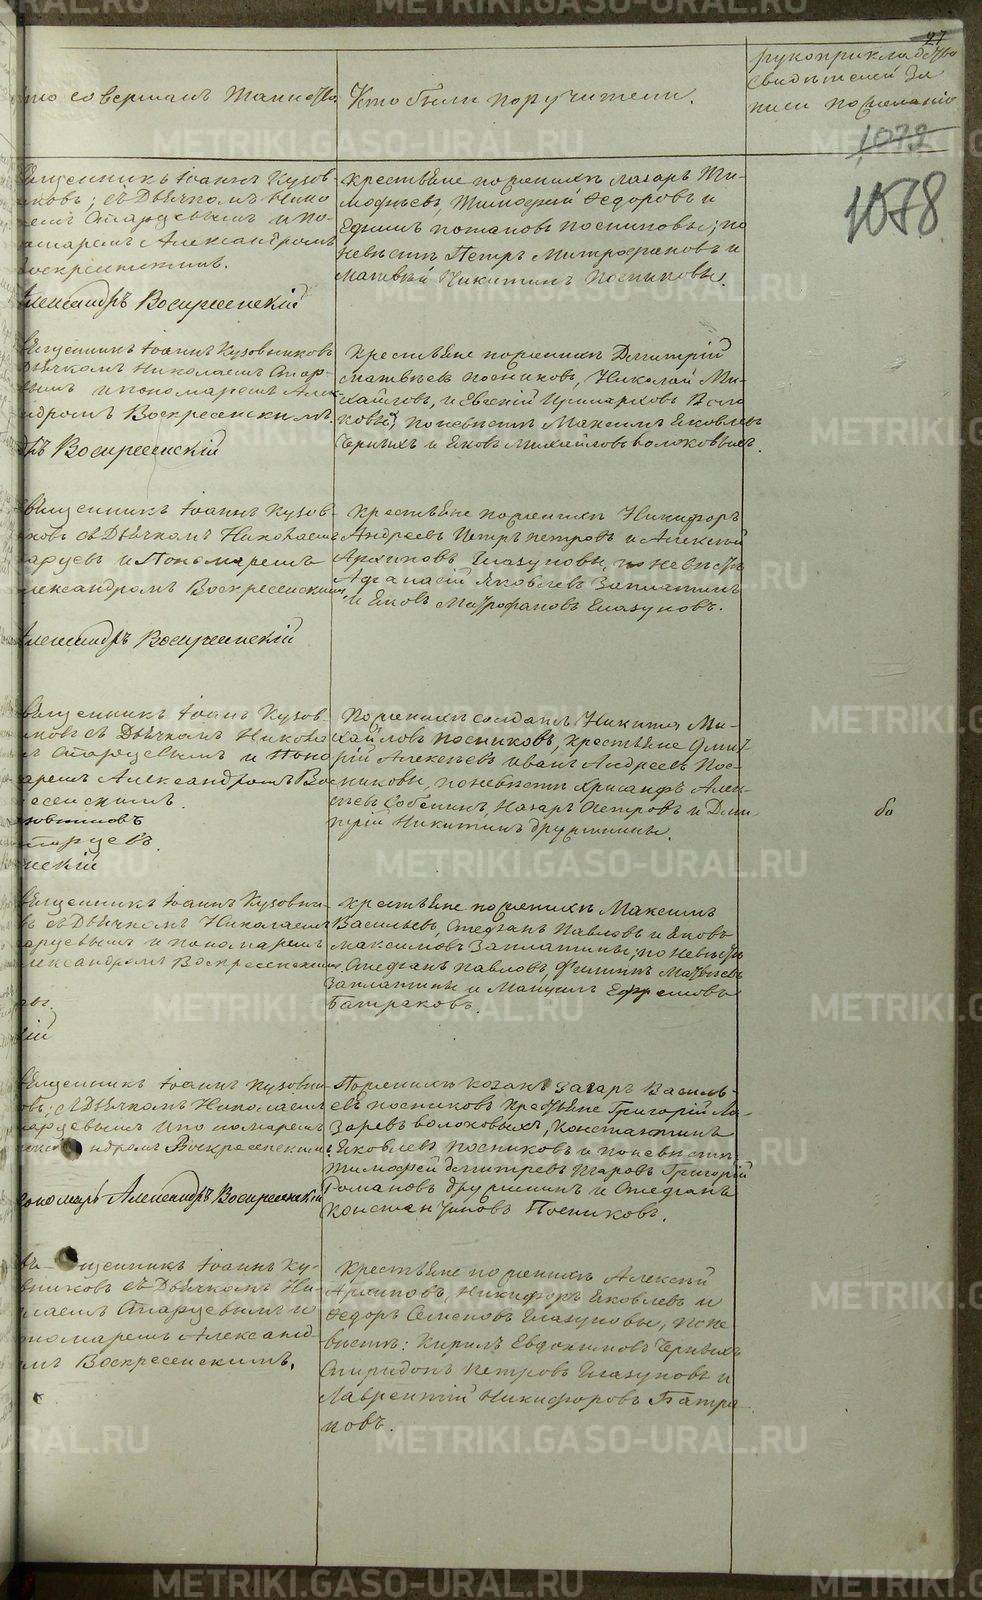 27
то совершалъ таинство
Кто были поручители.
рукоприкладство
свидѣтелей за
писи по желанію
1079
1078
священникъ Іоаннъ Кузов-
никовъ; съ Дьячкомъ Нико
лаемъ Старцевымъ и по-
номаремъ Александромъ
Воскресенскимъ.
Александръ Воскресенскій
Крестьяне по женихѣ Лазарь Ти-
мофѣевъ, Тимофей Федоровъ и
Ефимъ Потаповъ Посниковы; по
невѣстѣ Петръ Митрофановъ и
Матвѣй Никитинъ Посниковы.
священникъ Іоаннъ Кузовниковъ
Дьячкомъ Николаемъ Стар-
вымъ и пономаремъ Алек
андромъ Воскресенскимъ.
дръ Воскресенскій
Крестьяне по женихѣ Дмитрій
Матвѣевъ Посниковъ, Николай Ми-
хайловъ, и Евсевій Иринарховъ Воло
ковы; по невѣстѣ Максимъ Яковлевъ
Черныхъ и Яковъ Михайловъ Волоковыхъ.
священникъ Іоаннъ Кузов-
никовъ съ Дьячкомъ Николаемъ
арцевъ и Пономаремъ
лександромъ Воскресенскимъ
Александръ Воскресенскій
Крестьяне по женихѣ Никифоръ
Андреевъ Петръ Петровъ и Алексѣй
Архиповъ Глазуновы, по невѣстѣ
Афанасій Яковлевъ Заплатинъ
и Яковъ Митрофановъ Глазуновъ.
священникъ Іоаннъ Кузов-
никовъ съ Дьячкомъ Никола
мъ Старцевымъ и Поно
аремъ Александромъ Во
есенскимъ.
зовниковъ
тарцевъ.
нскій
По женихѣ солдатъ Никита Ми-
хайловъ Посниковъ, крестьяне Дмит
рій Алексѣевъ Иванъ Андреевъ Пос-
никовы, по невѣстѣ Хрисанфъ Алек
сѣевъ Собенинъ, Назаръ Петровъ и Дми
трій Никитинъ Дружинины.
бо
священникъ Іоаннъ Кузовни-
въ съ Дьячкомъ Николаемъ
арцевымъ и пономаремъ
лександромъ Воскресенскимъ
ій
Крестьяне по женихѣ Максимъ
Васильевъ, Стефанъ Павловъ и Яковъ
Максимовъ Заплатины; по невѣстѣ
Стефанъ Павловъ, Филипъ Матвѣевъ
Заплатины и Мануилъ Ефремовъ
Батраковъ.
священникъ Іоаннъ Кузовни-
овъ; съ Дьячкомъ Николаемъ
арцевымъ и пономаремъ
ндромъ Воскресенскимъ
пономарь Александръ Воскресенскій
По женихѣ козакъ Захаръ Василь-
евъ Посниковъ крестьяне Григорій Ла-
заревъ Волоковыхъ, Константинъ
Яковлевъ Посниковъ и по невѣстѣ
Тимофей Дмитревъ Титовъ Григорій
Романовъ Дружининъ и Стефанъ
Константиновъ Посниковъ.
щенникъ Іоаннъ Ку-
вниковъ съ Дьячкомъ Ни-
лаемъ Старцевымъ и
ономаремъ Александ-
мъ Воскресенскимъ.
Крестьяне по женихѣ Алексѣй
Архиповъ, Никифоръ Яковлевъ и
Федоръ Семеновъ Глазуновы, по не
вѣстѣ: Кирилъ Евдокимовъ Черныхъ
Спиридонъ Петровъ Глазуновъ и
Лаврентій Никифоровъ Батра
ковъ.
METRIKI.GASO-URAL.RU